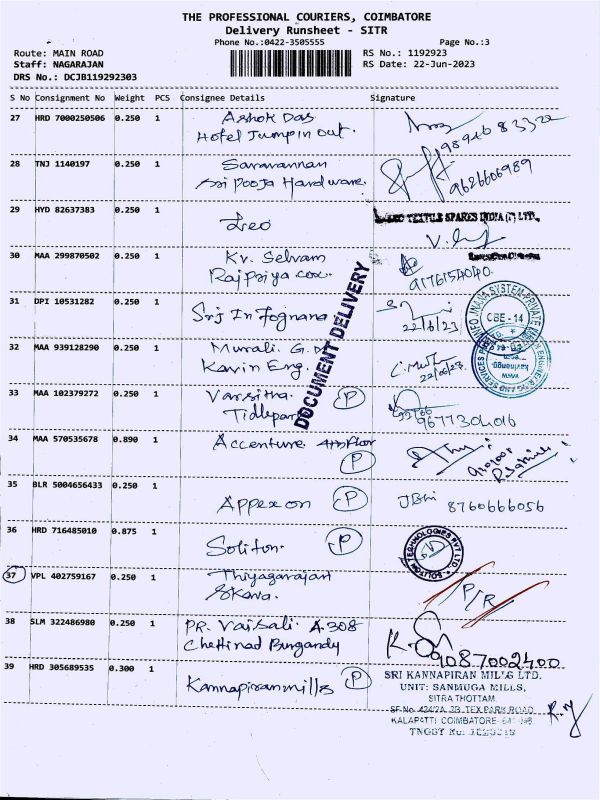 THE PROFESSIONAL COURIERS, COIMBATORE
Delivery Runsheet - SITR
Phone No.:0422-3505555
Page No.:3
Route: MAIN ROAD
RS No.: 1192923
Staff: NAGARAJAN
RS Date: 22-Jun-2023
DRS No.: DCJB119292303
S No Consignment No Weight PCS Consignee Details Signature
27 HRD 7000250506 0.250 1 Ashok Das
Hotel Jumpin out.
28 TNJ 1140197 0.250 1 Saravannan
Sri Pooja Hardware.
9626606989
29 HYD 82637383 0.250 1 Leo
TEXTILE SPARES INDIA (P) LTD.,
30 MAA 299870502 0.250 1 Kv. Selvam
Rajpriya
9176154040
31 DPI 10531282 0.250 1 Sri
22/6/23
CBE - 14
32 MAA 939128290 0.250 1 Murali. G.
Kavin Eng.
22/06/23
www.kavinengg.
DOCUMENT DELIVERY
33 MAA 102379272 0.250 1 Varsitha
P
9677304016
34 MAA 570535678 0.890 1 Accenture 4th floor
P
35 BLR 5004656433 0.250 1 Appexon P
8760666056
36 HRD 716485010 0.875 1 Soliton. P
SOLITON TECHNOLOGIES PVT LTD.
37 VPL 402759167 0.250 1 Thiyagarajan
P/R
38 SLM 322486980 0.250 1 PR. Vaisali. A.308
Chettinad Burgandy
9087002400
39 HRD 305689535 0.300 1 Kannapiran mills P
SRI KANNAPIRAN MILLS LTD.
UNIT: SANMUGA MILLS,
SITRA THOTTAM,
SF No. 424/2A, 2B, TEX PARK ROAD
KALAPATTI COIMBATORE-